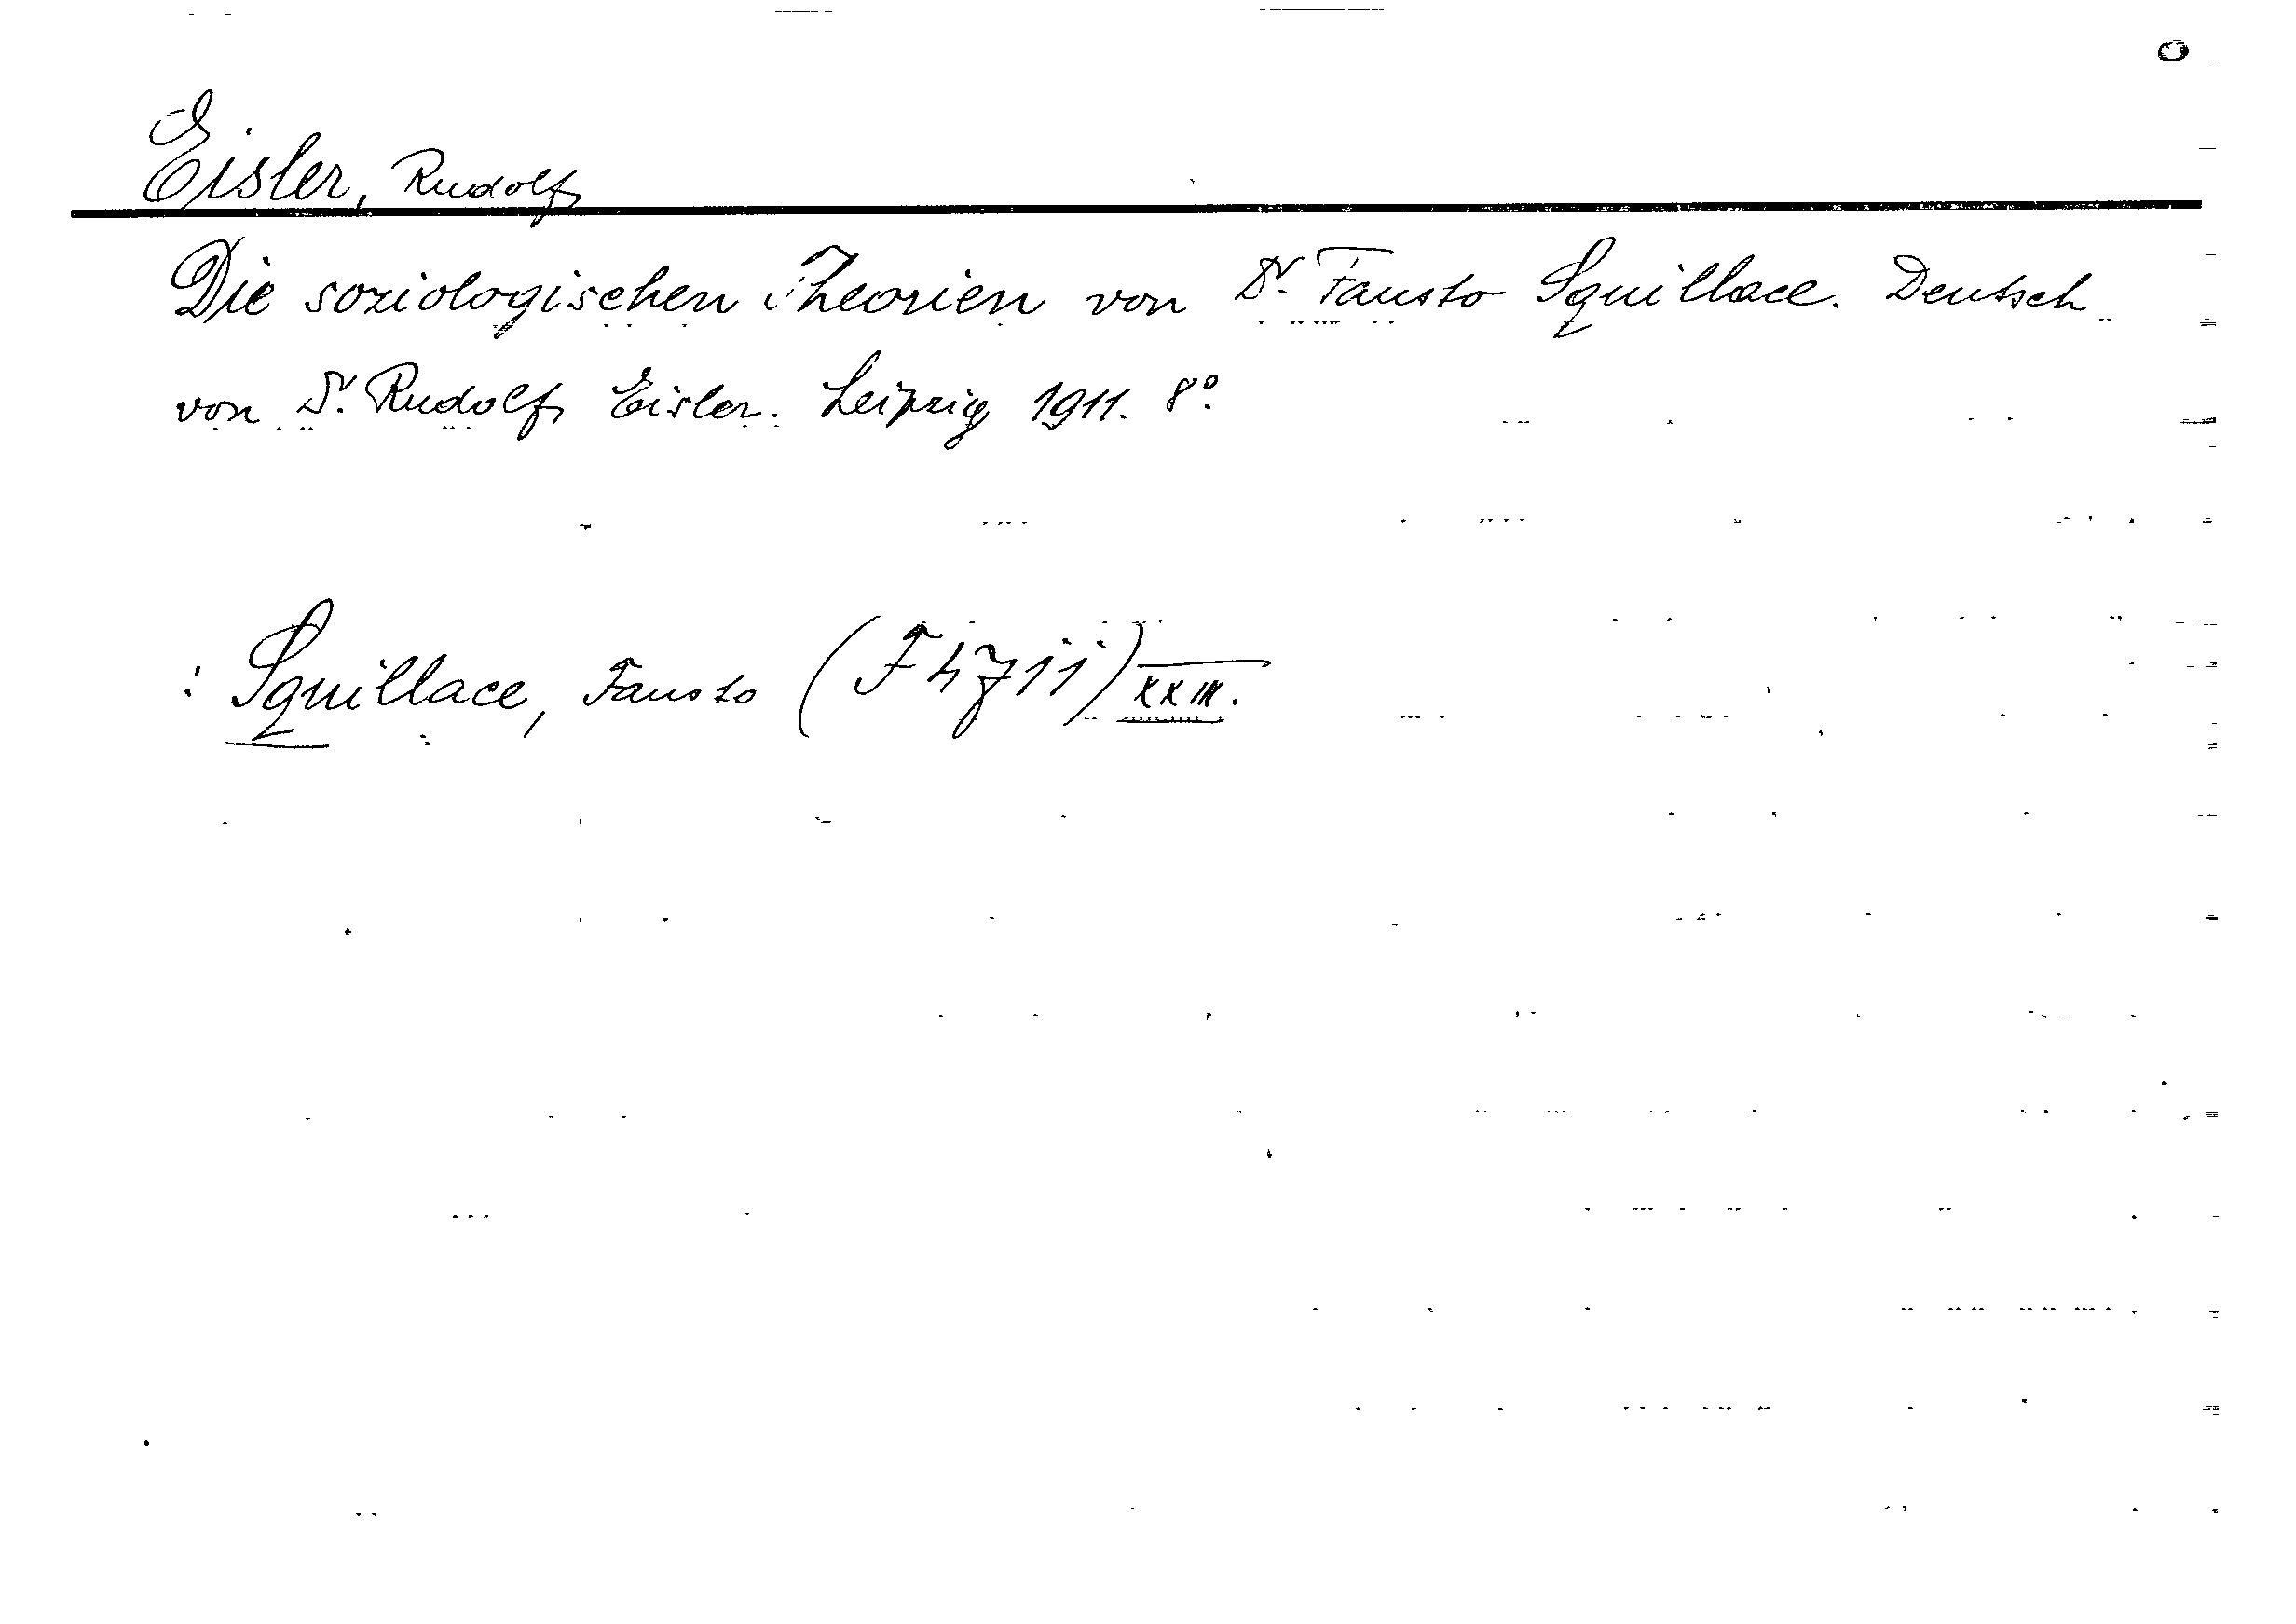 Eisler, Rudolf
Die soziologischen Theorien von Dr. Fausto Squillace. Deutsch
von Dr. Rudolf Eisler. Leipzig 1911. 8°.
: Squillace, Fausto XXIII.